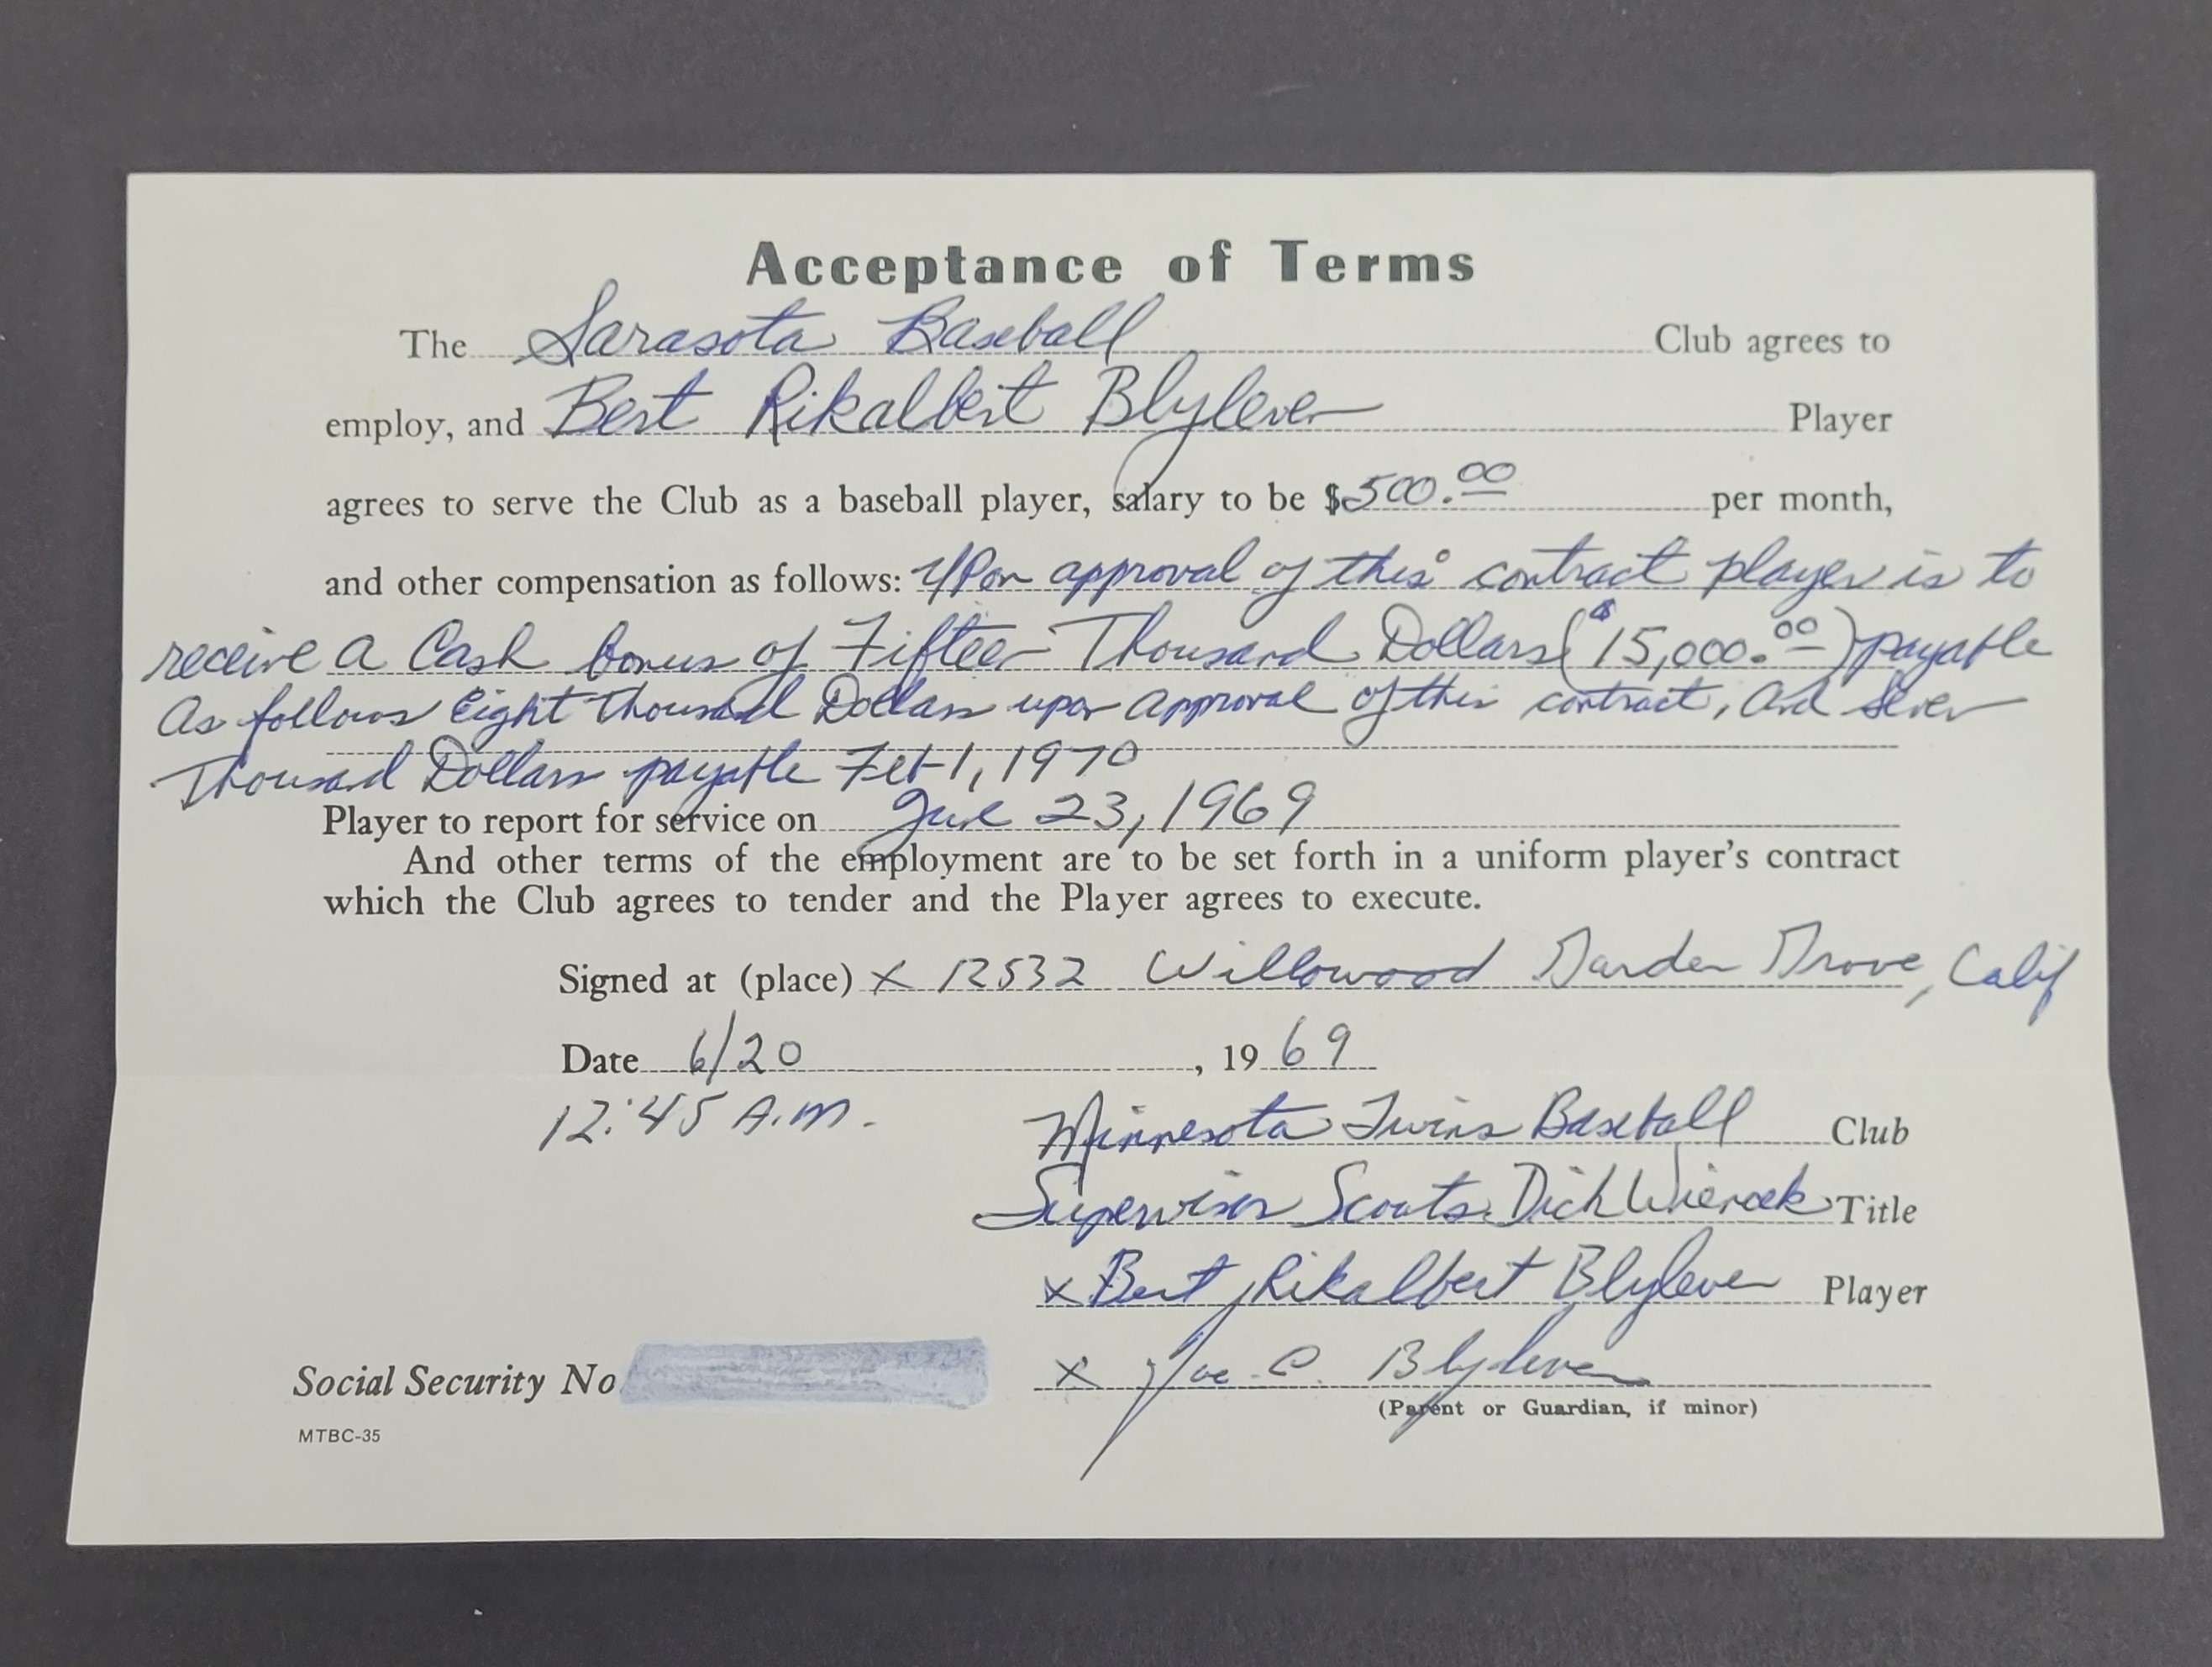 Acceptance of Terms
The Sarasota Baseball Club agrees to
employ, and Bert Rikalbert Blyleven Player
agrees to serve the Club as a baseball player, salary to be $500.00 per month,
and other compensation as follows: Upon approval of this contract player is to
receive a Cash bonus of Fifteen Thousand Dollars ($15,000.00) payable
As follows Eight Thousand Dollars upon approval of this contract, and Seven
Thousand Dollars payable Feb 1, 1970
Player to report for service on June 23, 1969
And other terms of the employment are to be set forth in a uniform player's contract
which the Club agrees to tender and the Player agrees to execute.
Signed at (place) x 12532 Willowood Garden Grove, Calif
Date 6/20, 1969
12:45 A.M.
Minnesota Twins Baseball Club
Supervisor Scouts Dick Wiencek Title
x Bert Rikalbert Blyleven Player
Social Security No x Joe C. Blyleven
(Parent or Guardian, if minor)
MTBC-35